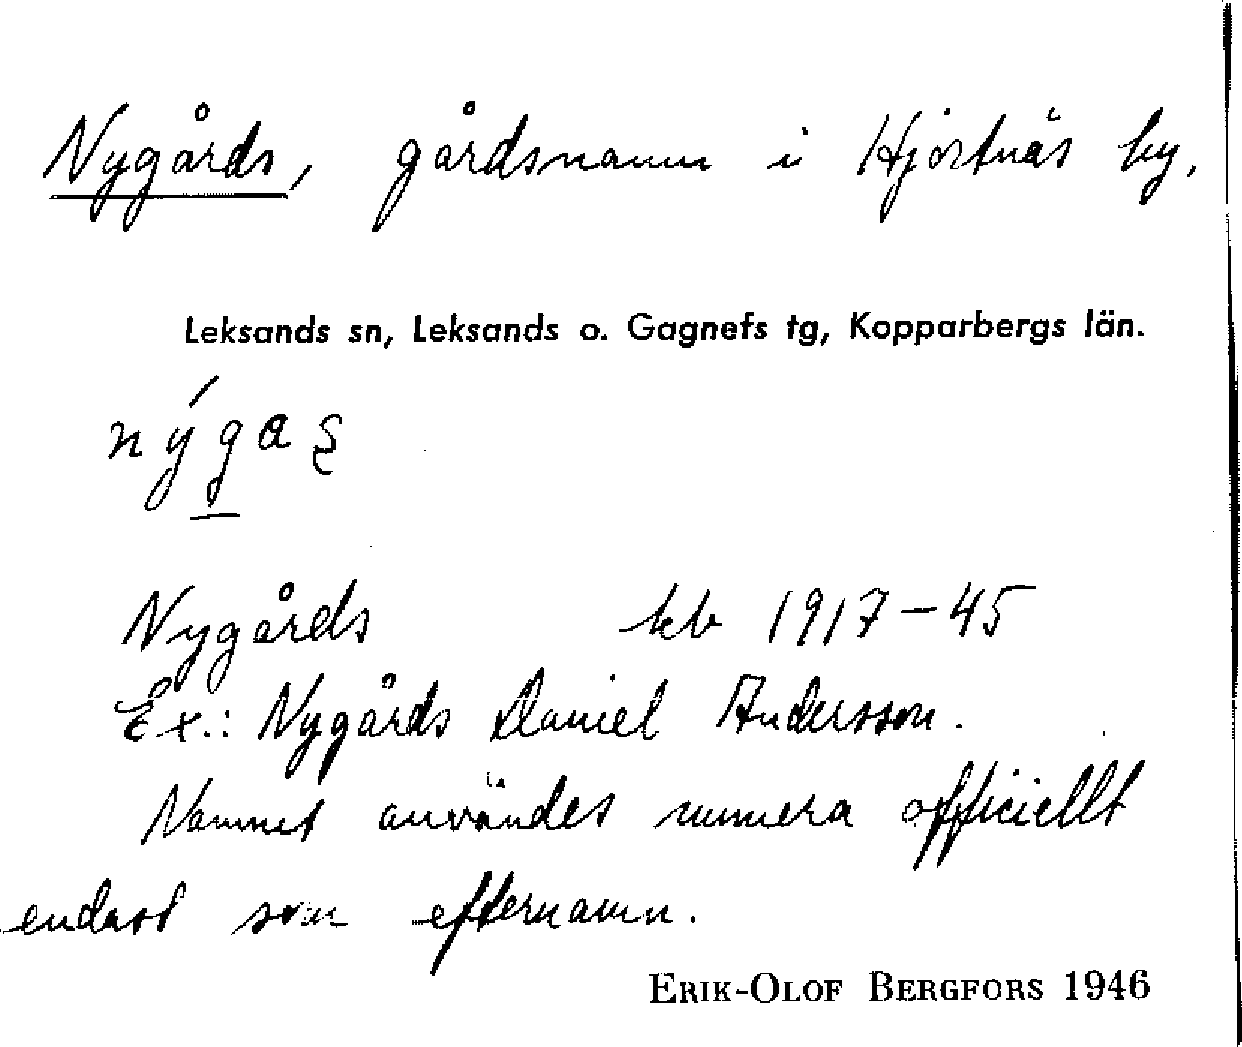 Nygårds, gårdsnamn i Hjortnäs by.
Leksands sn, Leksands o. Gagnefs tg, Kopparbergs län.
nýgaʂ
Nygårds kb 1917-45
Ex.: Nygårds Daniel Andersson.
Namnet användes numera officiellt
endast som efternamn.
ERIK-OLOF BERGFORS 1946